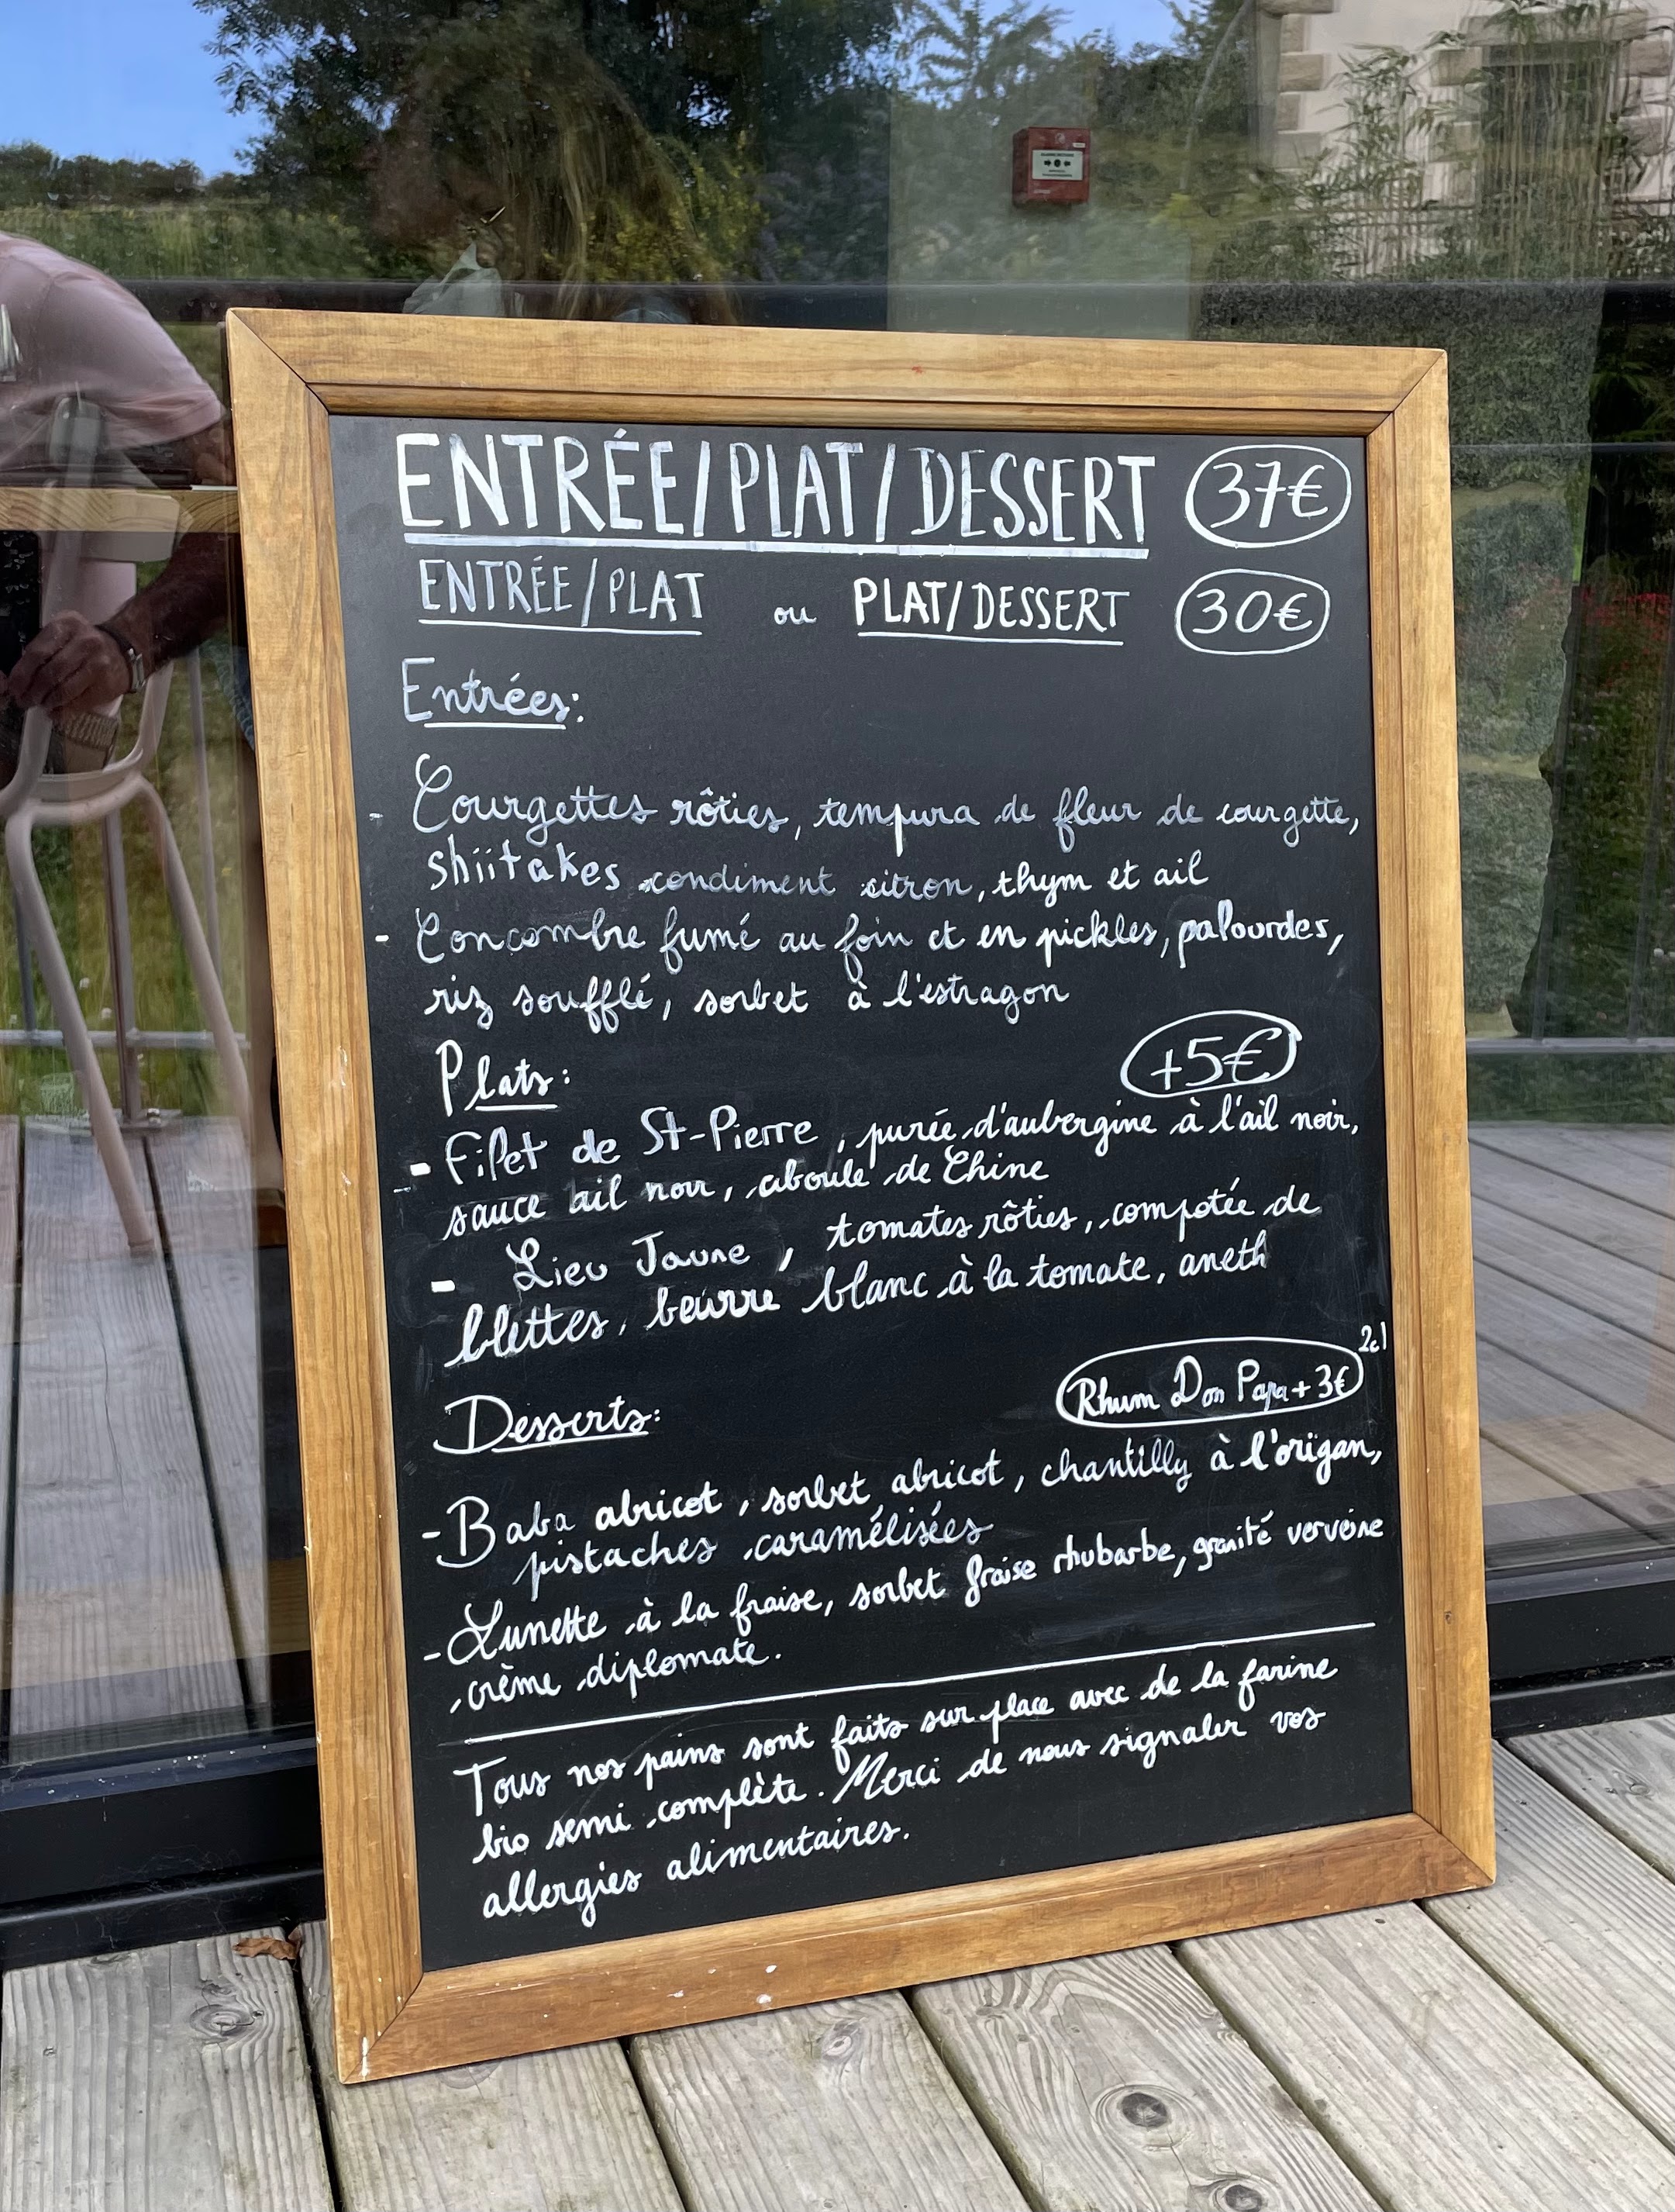 ENTRÉE/PLAT/DESSERT 37€
ENTRÉE/PLAT ou PLAT/DESSERT 30€
Entrées:
- Courgettes rôties, tempura de fleur de courgette,
shiitakes condiment citron, thym et ail
- Concombre fumé au foin et en pickles, palourdes,
riz soufflé, sorbet à l'estragon
Plats: +5€
- Filet de St-Pierre, purée d'aubergine à l'ail noir,
sauce ail noir, ciboule de Chine
- Lieu Jaune, tomates rôties, compotée de
blettes, beurre blanc à la tomate, aneth
Desserts: Rhum Don Papa + 3€ 2cl
- Baba abricot, sorbet abricot, chantilly à l'origan,
pistaches caramélisées
- Lunette à la fraise, sorbet fraise rhubarbe, granité verveine
crème diplomate.
Tous nos pains sont faits sur place avec de la farine
bio semi complète. Merci de nous signaler vos
allergies alimentaires.